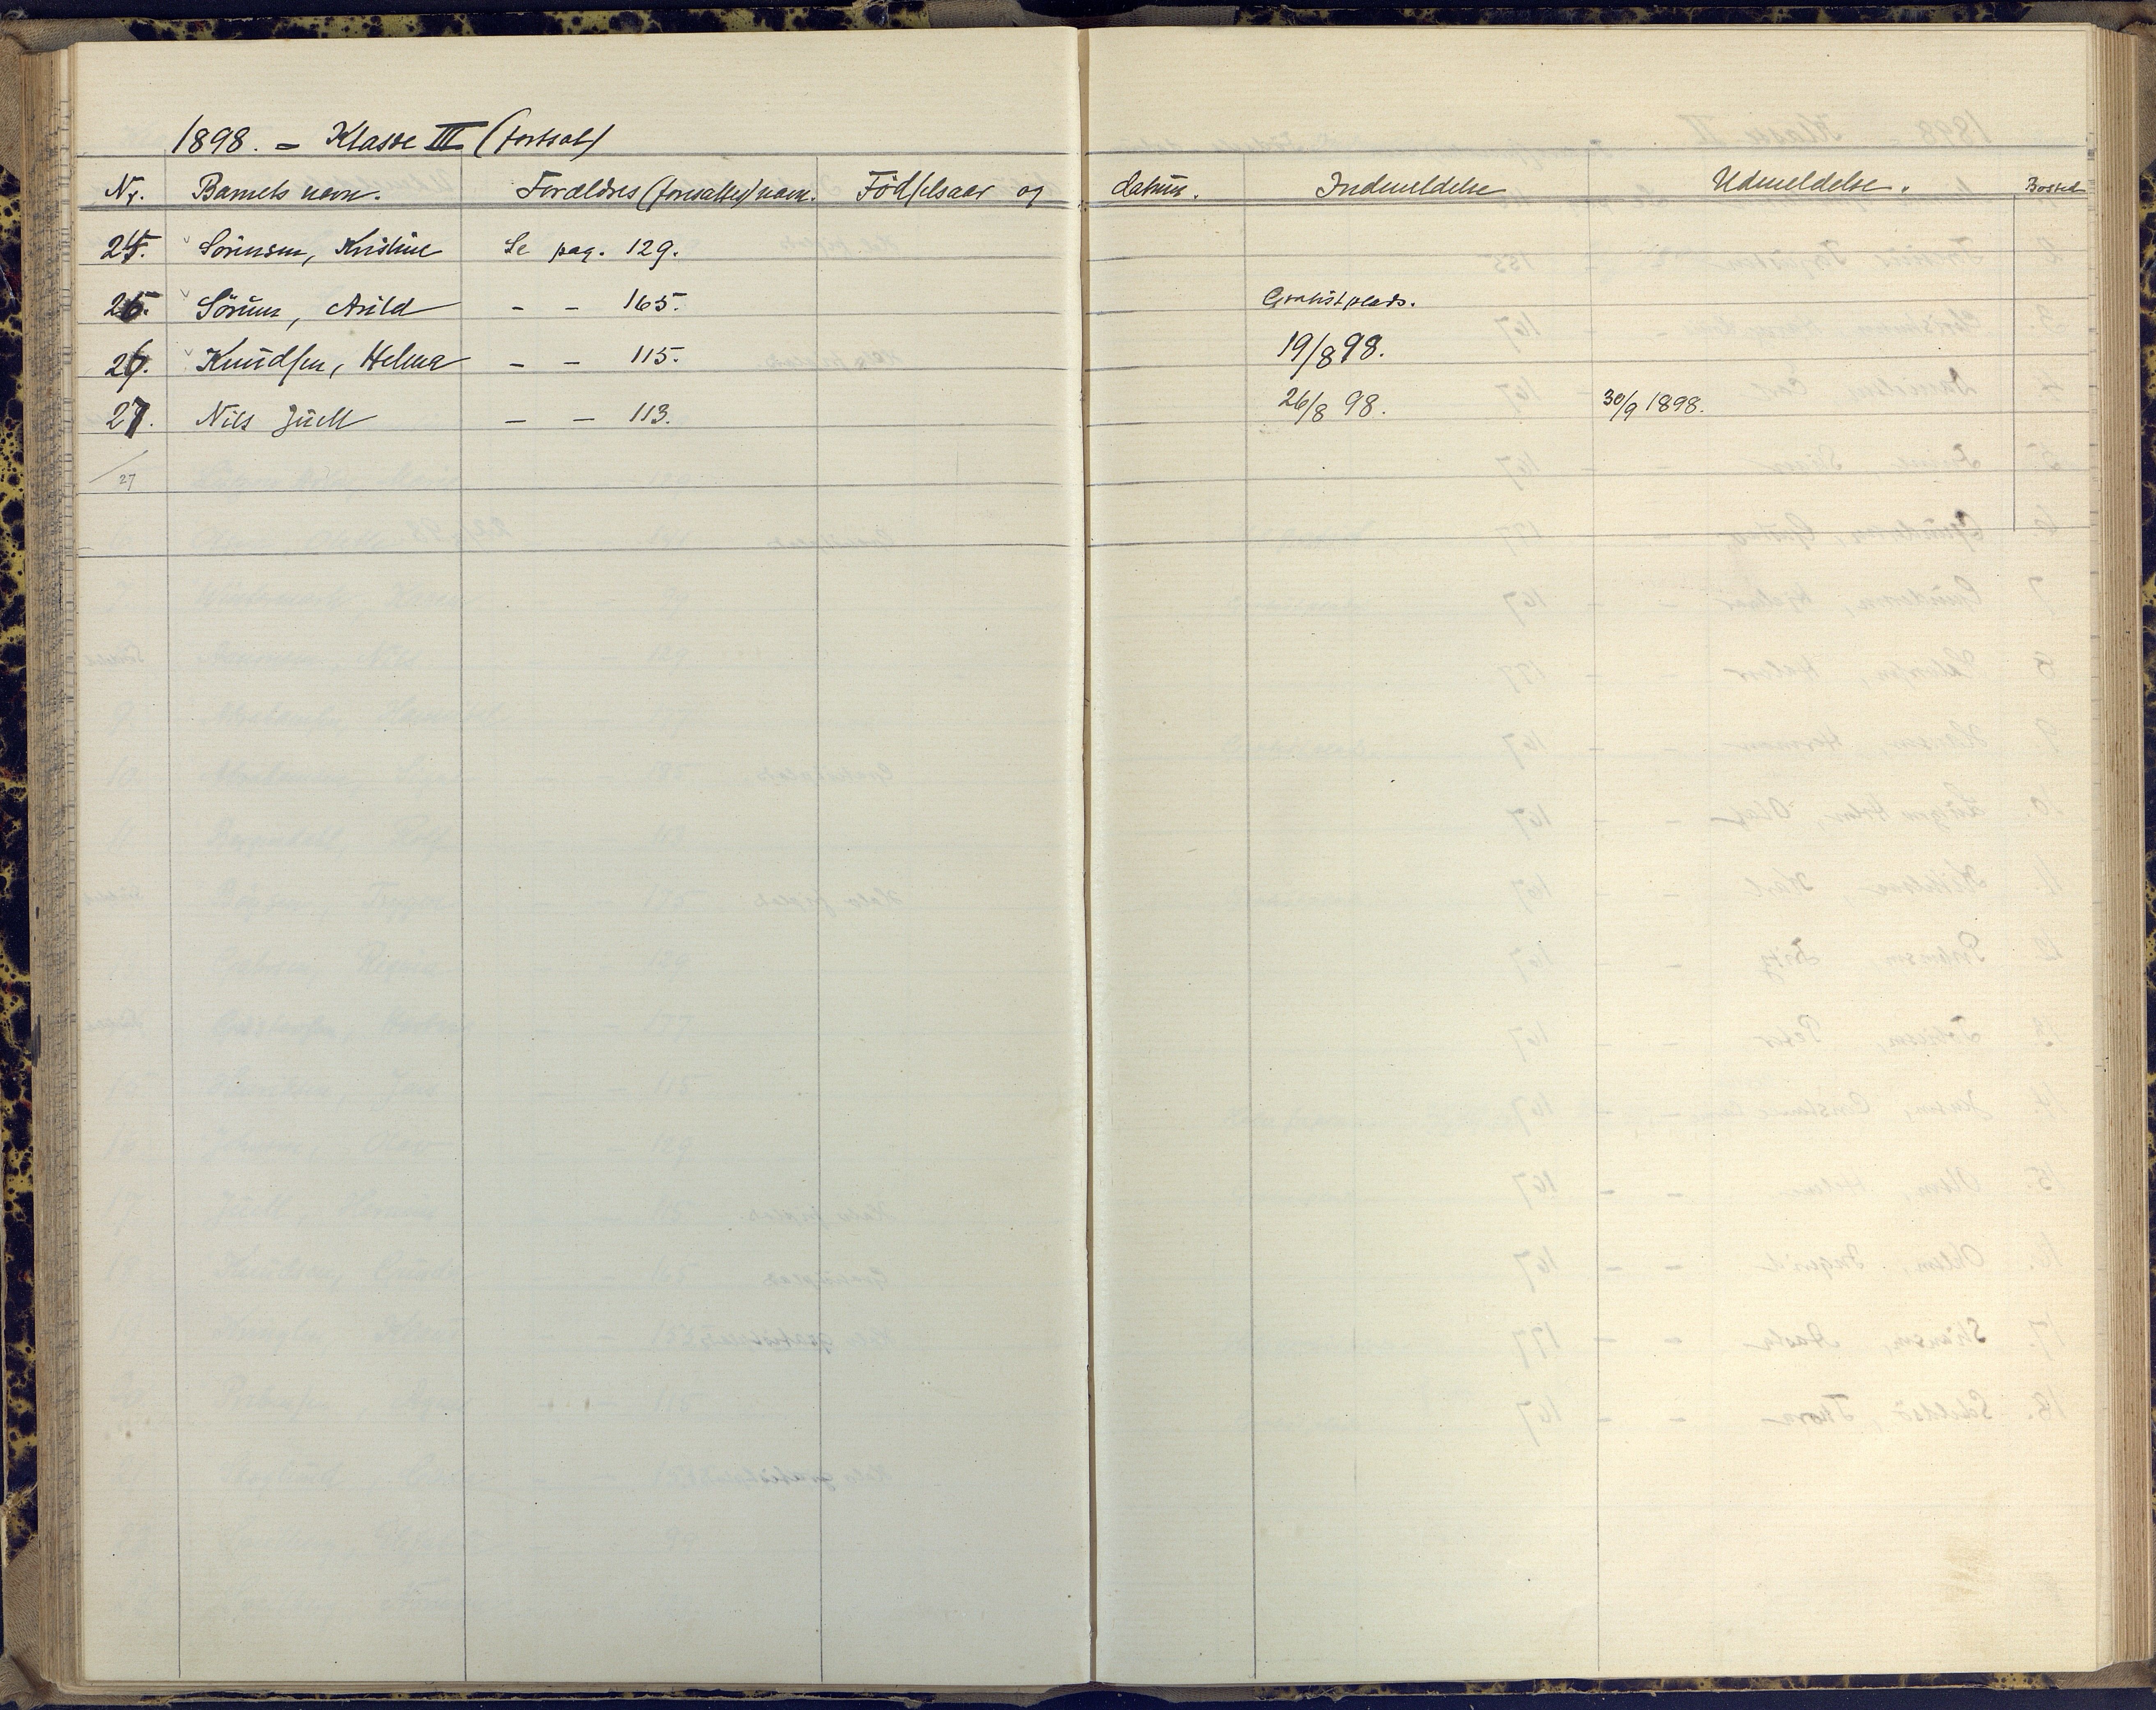 1898. - Klasse III (fortsat)
Nr. Barnets navn. Forældres (foresattes) navn. Fødselsaar og datum. Indmeldelse Udmeldelse. Bosted
24. Sörensen, Kristine Se pag. 129.
25. Sörum, Arild - - 165. Gratistplads.
26. Knudsen, Helma - - 115. 19/8 98.
27. Nils Juell - - 113. 26/8 98. 30/9 1898.
27